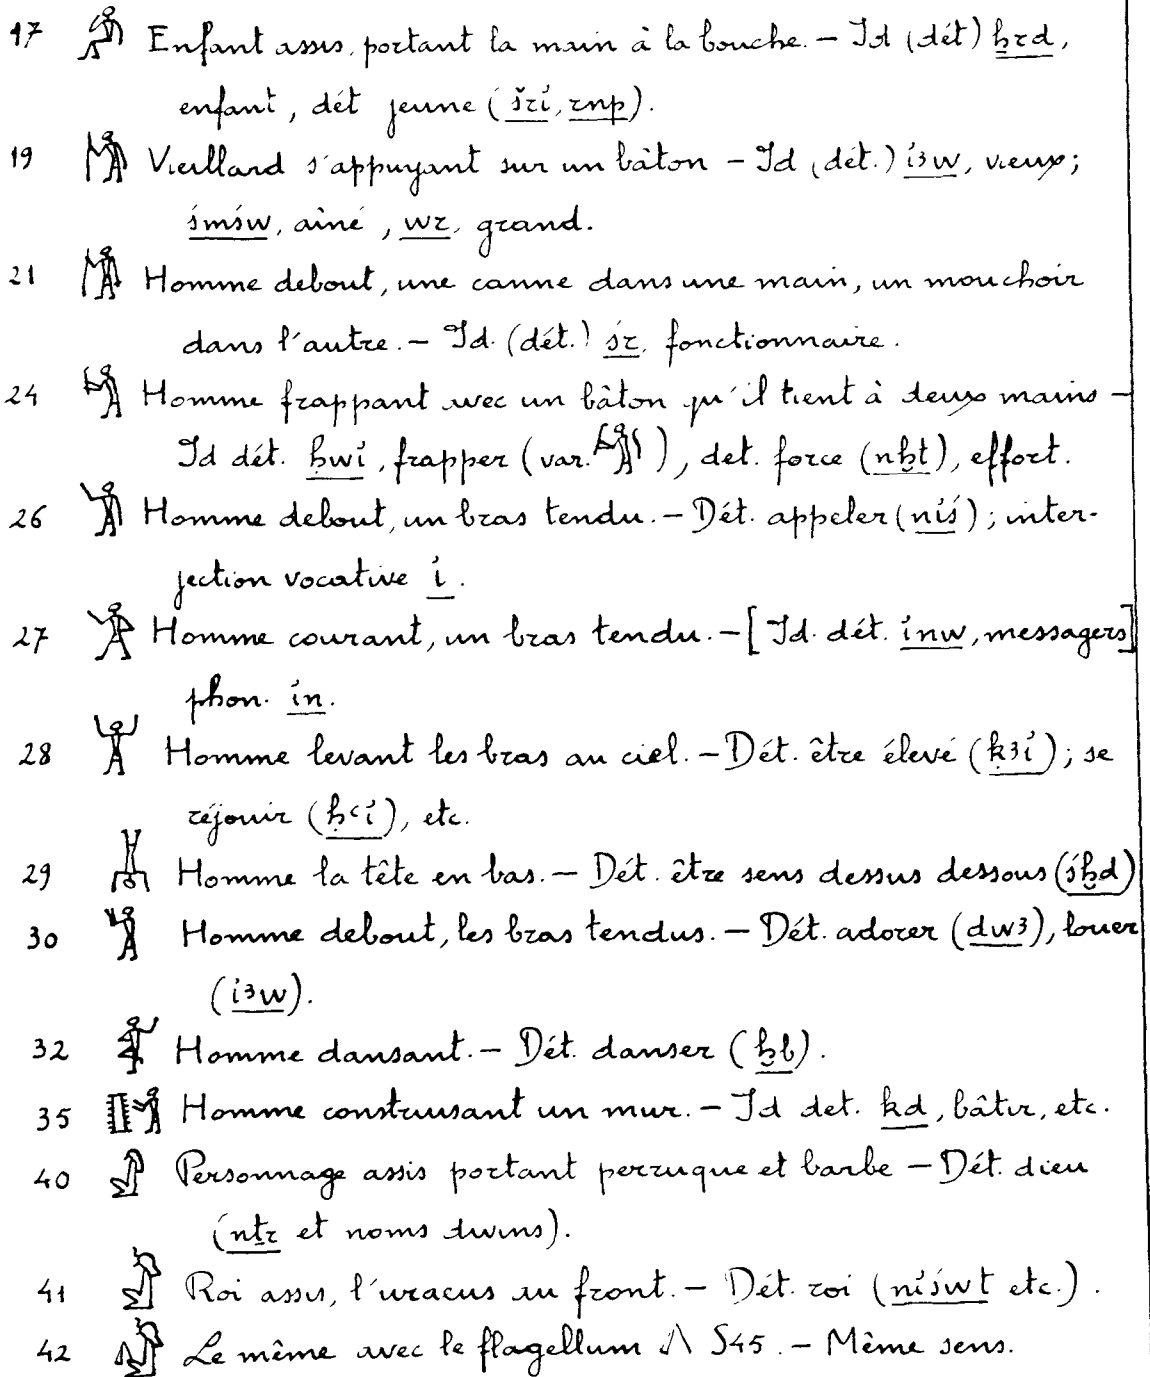 17 Enfant assis, portant la main à la bouche. – Id (dét) ẖrd,
enfant, dét jeune (šrı͗, rnp).
19 Vieillard s'appuyant sur un bâton – Id (dét.) ı͗ꜣw, vieux;
śmśw, aîné, wr, grand.
21 Homme debout, une canne dans une main, un mouchoir
dans l'autre. – Id. (dét.) śr, fonctionnaire.
24 Homme frappant avec un bâton qu'il tient à deux mains –
Id dét. ḥwı͗, frapper (var. ), det. force (nḫt), effort.
26 Homme debout, un bras tendu. – Dét. appeler (nı͗ś); inter-
jection vocative ı͗.
27 Homme courant, un bras tendu. – [Id. dét. ı͗nw, messagers]
phon. ı͗n.
28 Homme levant les bras au ciel. – Dét. être élevé (ḳꜣı͗); se
réjouir (ḥꜥı͗), etc.
29 Homme la tête en bas. – Dét. être sens dessus dessous (śḫd)
30 Homme debout, les bras tendus. – Dét. adorer (dwꜣ), louer
(ı͗ꜣw).
32 Homme dansant. – Dét. danser (ḫb).
35 Homme construisant un mur. – Id det. ḳd, bâtir, etc.
40 Personnage assis portant perruque et barbe – Dét. dieu
(nṯr et noms divins).
41 Roi assis, l'uraeus au front. – Dét. roi (nı͗św​t etc.).
42 Le même avec le flagellum S45. – Même sens.